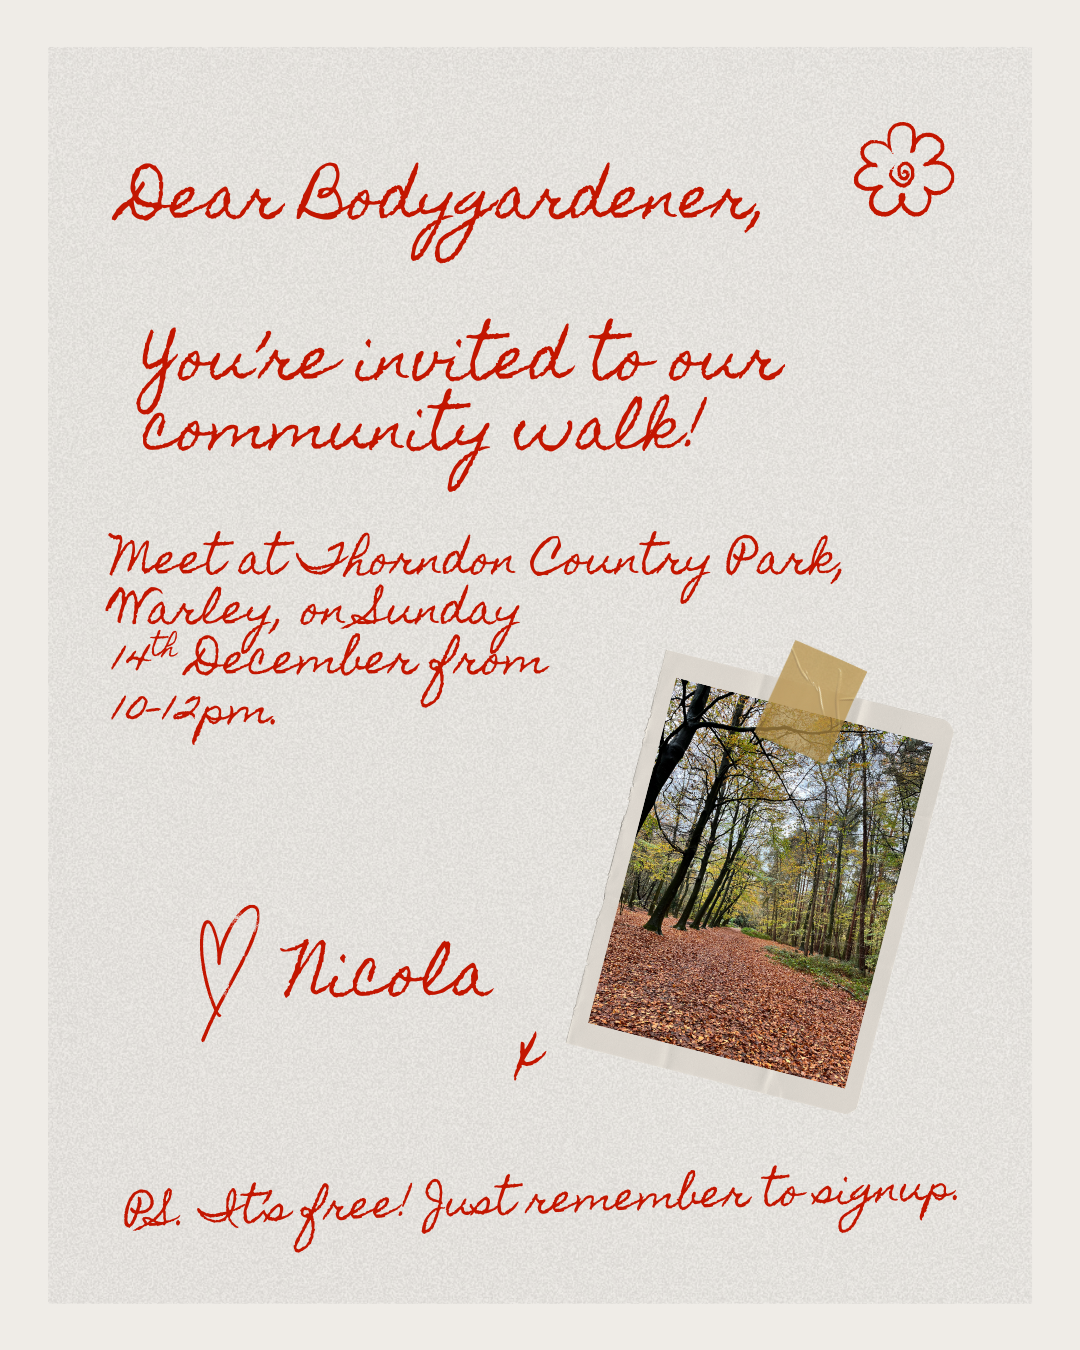 Dear Bodygardener,
You're invited to our
community walk!
Meet at Thorndon Country Park,
Warley, on Sunday
14th December from
10-12pm.
Nicola
x
PS. It's free! Just remember to signup.